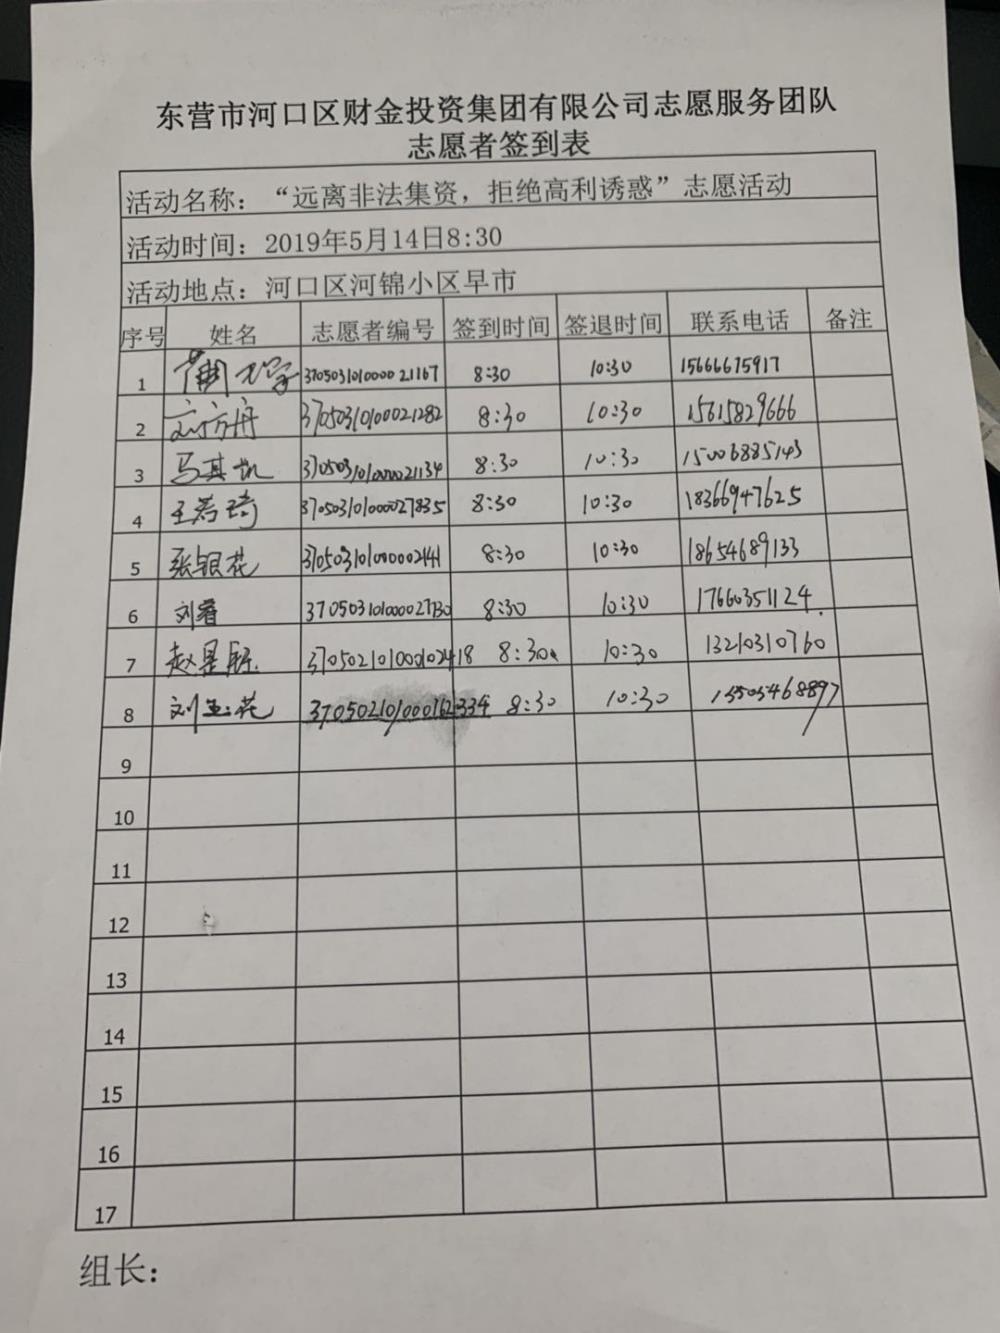 东营市河口区财金投资集团有限公司志愿服务团队
志愿者签到表
活动名称：“远离非法集资，拒绝高利诱惑”志愿活动
活动时间：2019年5月14日8:30
活动地点：河口区河锦小区早市
序号 姓名 志愿者编号 签到时间 签退时间 联系电话 备注
1 370503101000021167 8:30 10:30 15666675917
2 刘方舟 370503101000021282 8:30 10:30 15615829666
3 马其凯 370503101000021134 8:30 10:30 15006885143
4 王若琦 370503101000027835 8:30 10:30 18366947625
5 张银花 370503101000002441 8:30 10:30 18654689133
6 刘睿 370503101000027730 8:30 10:30 17660351124
7 赵星 370502101000102418 8:30 10:30 13210310760
8 刘玉花 370502101000162334 8:30 10:30 13505468897
9
10
11
12
13
14
15
16
17
组长：